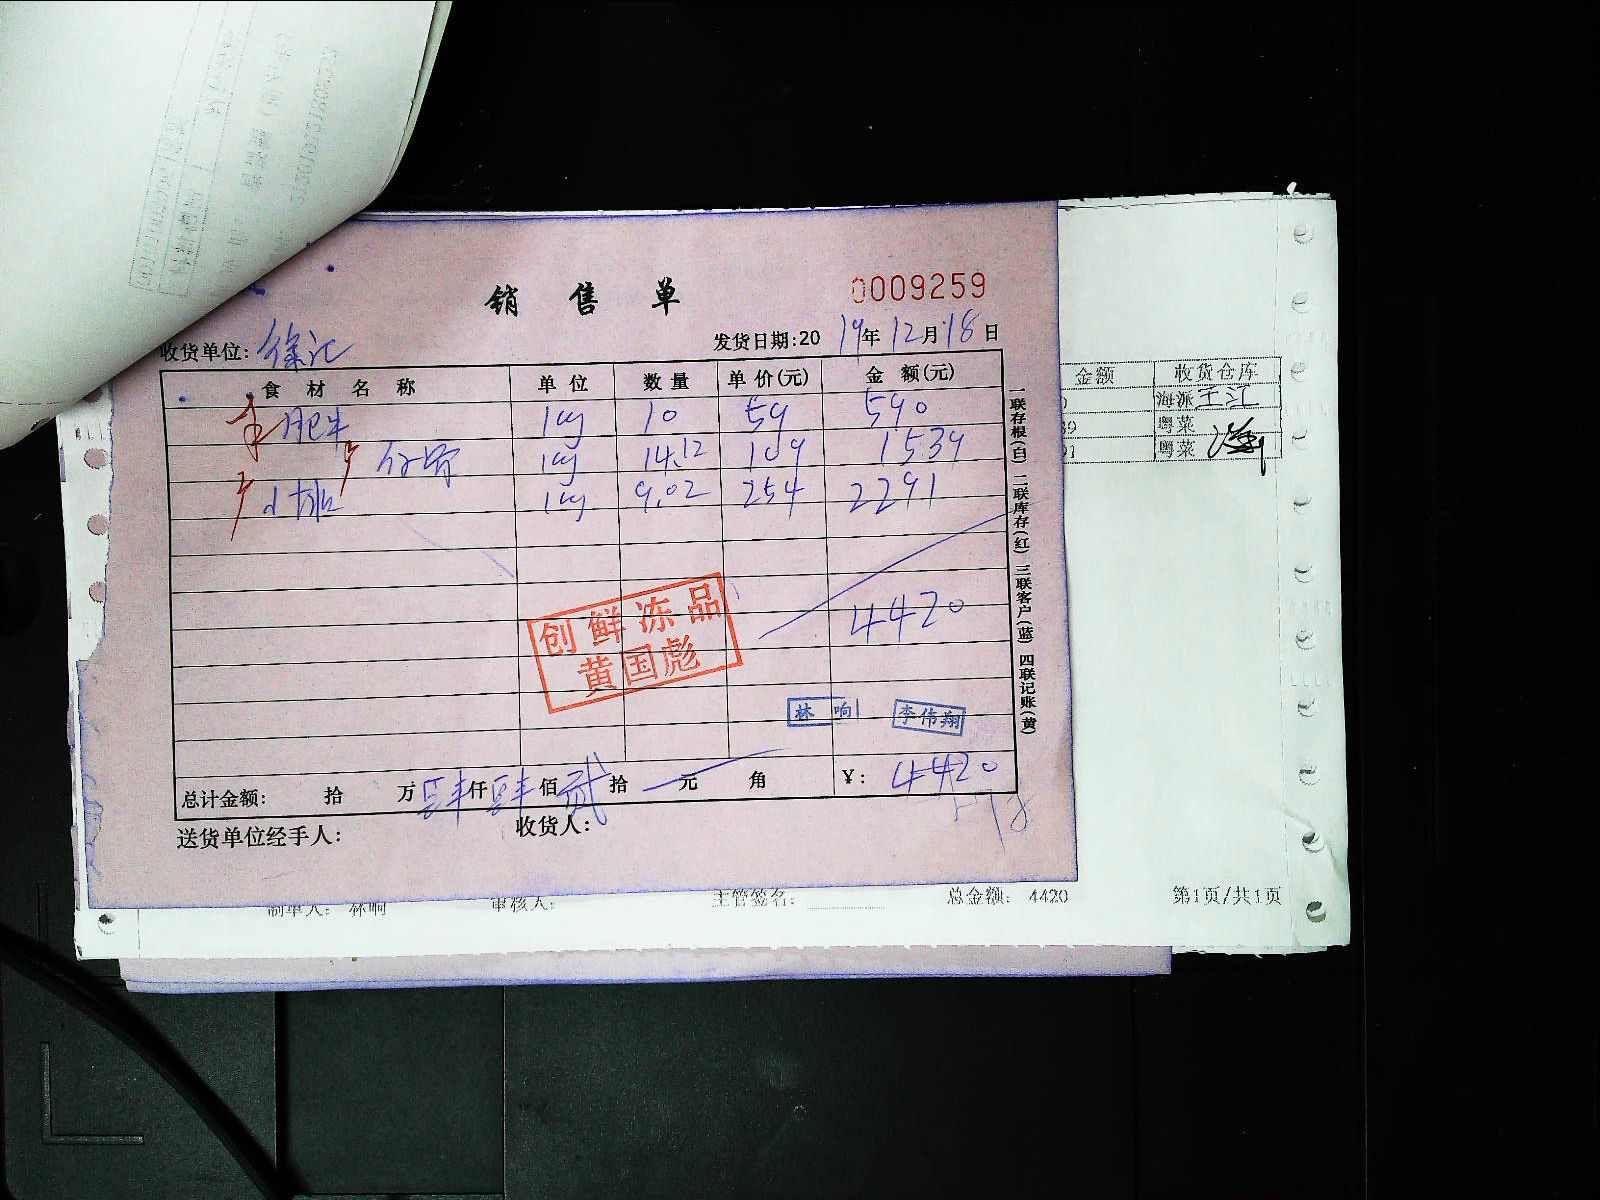 销售单 0009259
收货单位: 徐记 发货日期:2019年12月18日
食材名称 单位 数量 单价(元) 金额(元)
肥牛 kg 10 59 590
kg 14.12 109 1539
小排 kg 9.02 254 2291
4420
创鲜冻品
黄国彪
林响 李伟翔
总计金额: 拾 万肆仟肆佰贰拾 元 角 ¥: 4420
送货单位经手人: 收货人:
一联存根(白) 二联库存(红) 三联客户(蓝) 四联记账(黄)
金额 收货仓库
海派
粤菜
粤菜
制单人: 林响 审核人: 主管签名: 总金额: 4420 第1页/共1页